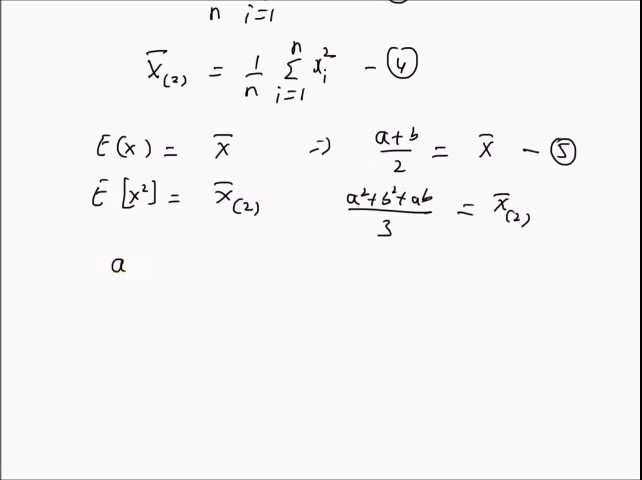 n i=1
x̄₍₂₎ = 1/n Σ_{i=1}^{n} x_i² – ④
E(x) = x̄ ⇒ (a+b)/2 = x̄ – ⑤
E[x²] = x̄₍₂₎ (a²+b²+ab)/3 = x̄₍₂₎
a